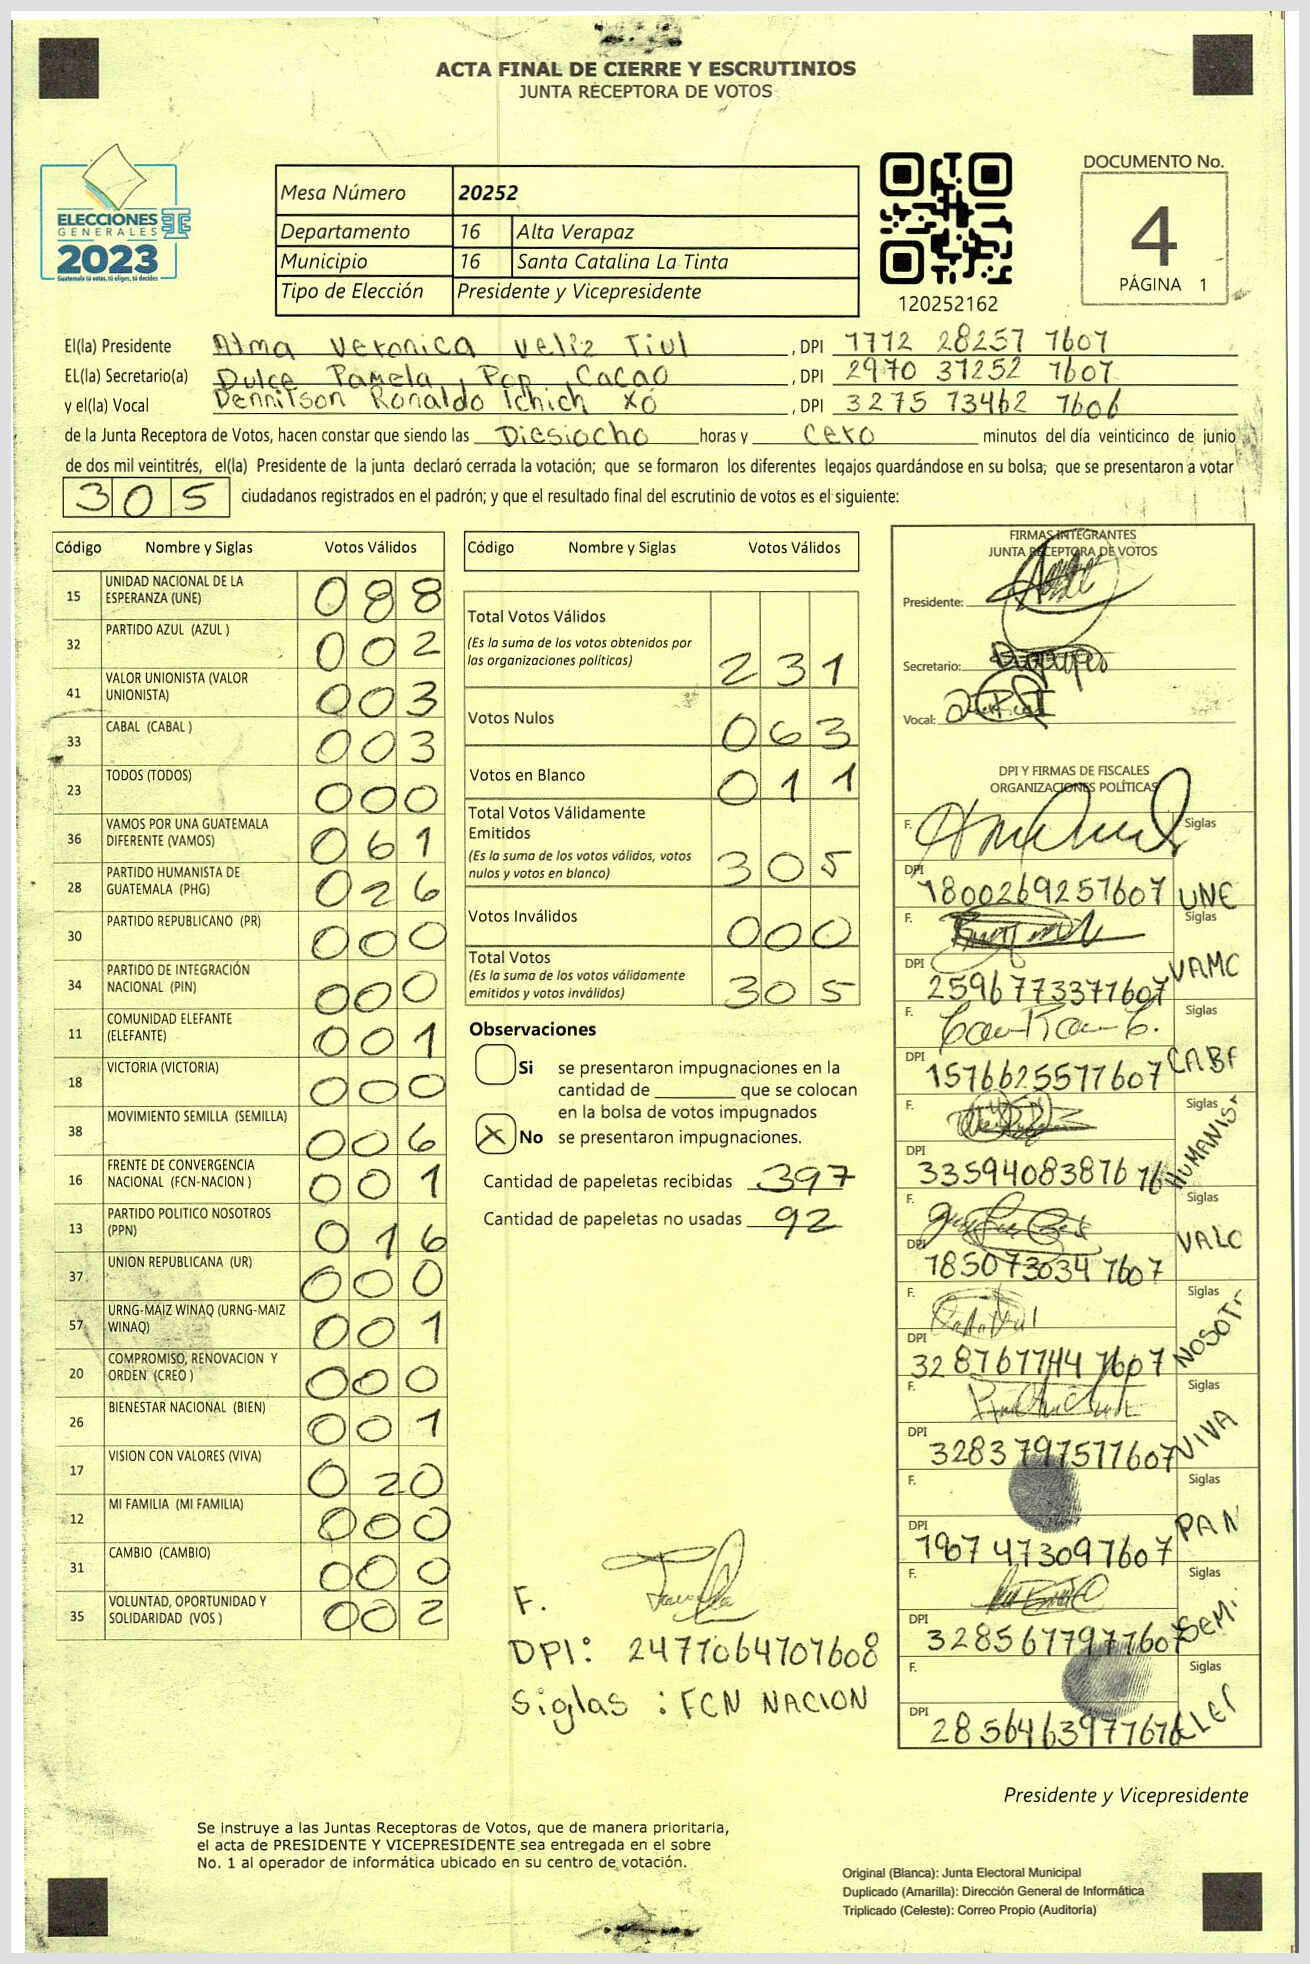 ACTA FINAL DE CIERRE Y ESCRUTINIOS
JUNTA RECEPTORA DE VOTOS
ELECCIONES
GENERALES
2023
Guatemala tú votas, tú eliges, tú decides
Mesa Número 20252
Departamento 16 Alta Verapaz
Municipio 16 Santa Catalina La Tinta
Tipo de Elección Presidente y Vicepresidente
120252162
DOCUMENTO No.
4
PÁGINA 1
El(la) Presidente Alma Veronica Veliz Tiul , DPI 1772 28257 1607
EL(la) Secretario(a) Dulce Pamela Pop Cacao , DPI 2970 37252 1607
y el(la) Vocal Dennilson Ronaldo Ichich Xó , DPI 3275 73462 1606
de la Junta Receptora de Votos, hacen constar que siendo las Diesiocho horas y cero minutos del día veinticinco de junio
de dos mil veintitrés, el(la) Presidente de la junta declaró cerrada la votación; que se formaron los diferentes legajos guardándose en su bolsa; que se presentaron a votar
305 ciudadanos registrados en el padrón; y que el resultado final del escrutinio de votos es el siguiente:
Código Nombre y Siglas Votos Válidos
15 UNIDAD NACIONAL DE LA ESPERANZA (UNE) 088
32 PARTIDO AZUL (AZUL ) 002
41 VALOR UNIONISTA (VALOR UNIONISTA) 003
33 CABAL (CABAL ) 003
23 TODOS (TODOS) 000
36 VAMOS POR UNA GUATEMALA DIFERENTE (VAMOS) 061
28 PARTIDO HUMANISTA DE GUATEMALA (PHG) 026
30 PARTIDO REPUBLICANO (PR) 000
34 PARTIDO DE INTEGRACIÓN NACIONAL (PIN) 000
11 COMUNIDAD ELEFANTE (ELEFANTE) 001
18 VICTORIA (VICTORIA) 000
38 MOVIMIENTO SEMILLA (SEMILLA) 006
16 FRENTE DE CONVERGENCIA NACIONAL (FCN-NACION ) 001
13 PARTIDO POLITICO NOSOTROS (PPN) 016
37 UNION REPUBLICANA (UR) 000
57 URNG-MAIZ WINAQ (URNG-MAIZ WINAQ) 001
20 COMPROMISO, RENOVACION Y ORDEN (CREO ) 000
26 BIENESTAR NACIONAL (BIEN) 001
17 VISION CON VALORES (VIVA) 020
12 MI FAMILIA (MI FAMILIA) 000
31 CAMBIO (CAMBIO) 000
35 VOLUNTAD, OPORTUNIDAD Y SOLIDARIDAD (VOS ) 002
Código Nombre y Siglas Votos Válidos
Total Votos Válidos
(Es la suma de los votos obtenidos por
las organizaciones políticas) 231
Votos Nulos 063
Votos en Blanco 011
Total Votos Válidamente
Emitidos
(Es la suma de los votos válidos, votos
nulos y votos en blanco) 305
Votos Inválidos 000
Total Votos
(Es la suma de los votos válidamente
emitidos y votos inválidos) 305
Observaciones
Si se presentaron impugnaciones en la
cantidad de que se colocan
en la bolsa de votos impugnados
X No se presentaron impugnaciones.
Cantidad de papeletas recibidas 397
Cantidad de papeletas no usadas 92
F.
DPI: 2477064701608
Siglas : FCN NACION
FIRMAS INTEGRANTES
JUNTA RECEPTORA DE VOTOS
Presidente:
Secretario:
Vocal:
DPI Y FIRMAS DE FISCALES
ORGANIZACIONES POLÍTICAS
F. Siglas
DPI 1800269251607 UNE
F. Siglas
DPI 2596773371607 VAMO
F. Siglas
DPI 1576625571607 CABA
F. Siglas
DPI 33594083876 16 HUMANIST
F. Siglas
DPI 185073034 1607 VALO
F. Siglas
DPI 328767744 1607 NOSOTR
F. Siglas
DPI 3283797571607 VIVA
F. Siglas
DPI 1967473091607 PAN
F. Siglas
DPI 3285677971607 SEMI
F. Siglas
DPI
Presidente y Vicepresidente
Se instruye a las Juntas Receptoras de Votos, que de manera prioritaria,
el acta de PRESIDENTE Y VICEPRESIDENTE sea entregada en el sobre
No. 1 al operador de informática ubicado en su centro de votación.
Original (Blanca): Junta Electoral Municipal
Duplicado (Amarilla): Dirección General de Informática
Triplicado (Celeste): Correo Propio (Auditoría)